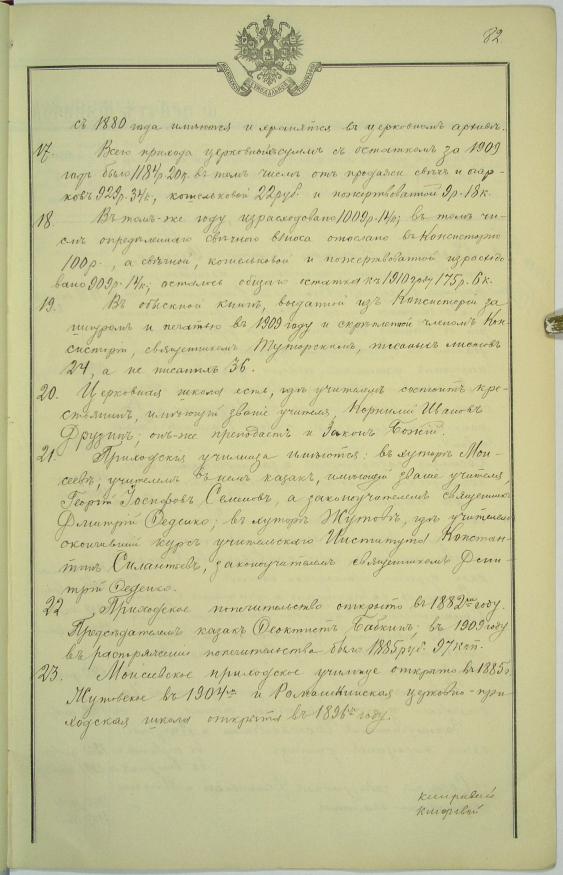 82.
съ 1880 года имѣются и хранятся въ церковномъ архивѣ.
17. Всего прихода церковныхъ суммъ съ остаткомъ за 1909
годъ было 1184р. 20к. въ томъ числѣ отъ продажи свѣчъ и огар-
ковъ 929р. 34к., кошельковой 22руб. и пожертвоватой 9р. 18к.
18. Въ томъ-же году израсходовано 1009р. 14к; въ томъ чи-
слѣ опредѣленнаго свѣчного взноса отослано въ Консисторію
100р., а свѣчной, кошельковой и пожертвоватой израсходо
вано 909р. 14к; осталось общаго остатка къ 1910 году 175р. 6к.
19. Въ обыскной книгѣ, выданной изъ Консисторіи за
шнуромъ и печатью въ 1909 году и скрѣпленной членомъ Кон
систоріи, священникомъ писанныхъ листовъ
24, а не писаныхъ 36.
20. Церковная школа есть, гдѣ учителемъ состоитъ кре-
стьянинъ, имѣющій званіе учителя, Корнилій
онъ-же преподаетъ и Законъ Божій.
21. Приходскія училища имѣются: въ хуторѣ Мои-
сеевѣ; учителемъ въ немъ казакъ, имѣющій званіе учителя
Георгій Іосифовъ Семеновъ, а законоучителемъ священникъ
Дмитрій Феденко; въ хуторѣ Жутовѣ, гдѣ учителемъ
окончившій курсъ учительскаго Института Констан-
тинъ Силантьевъ, законоучителемъ священникъ Дми-
трій Феденко.
22. Приходское попечительство открыто въ 1882мъ году.
Предсѣдателемъ казакъ Феоктистъ Бабкинъ; въ 1909 году
въ распоряженіи попечительства было 1885руб. 97 коп.
23. Моисеевское приходское училище открыто въ 1885г.
Жутовское въ 1904мъ и Ромашкинская церковно-при
ходская школа открыта въ 1896мъ году.